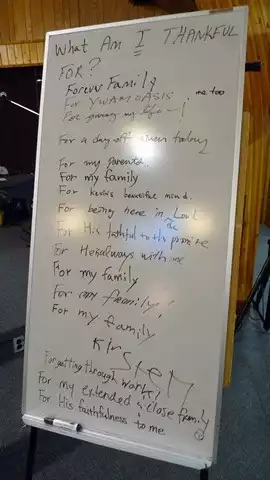 What Am I THANKFUL
FOR?
Forever Family
For YWAM OASIS
me too
For giving my life
For a day off when today
For my parents.
For my family
For kevins beautiful mind.
For being here in
the
For His faithful to the promise
For He is always with me
For my family
For my family!
For my family
For getting through work!
For my extended & close family
For His faithfulness to me